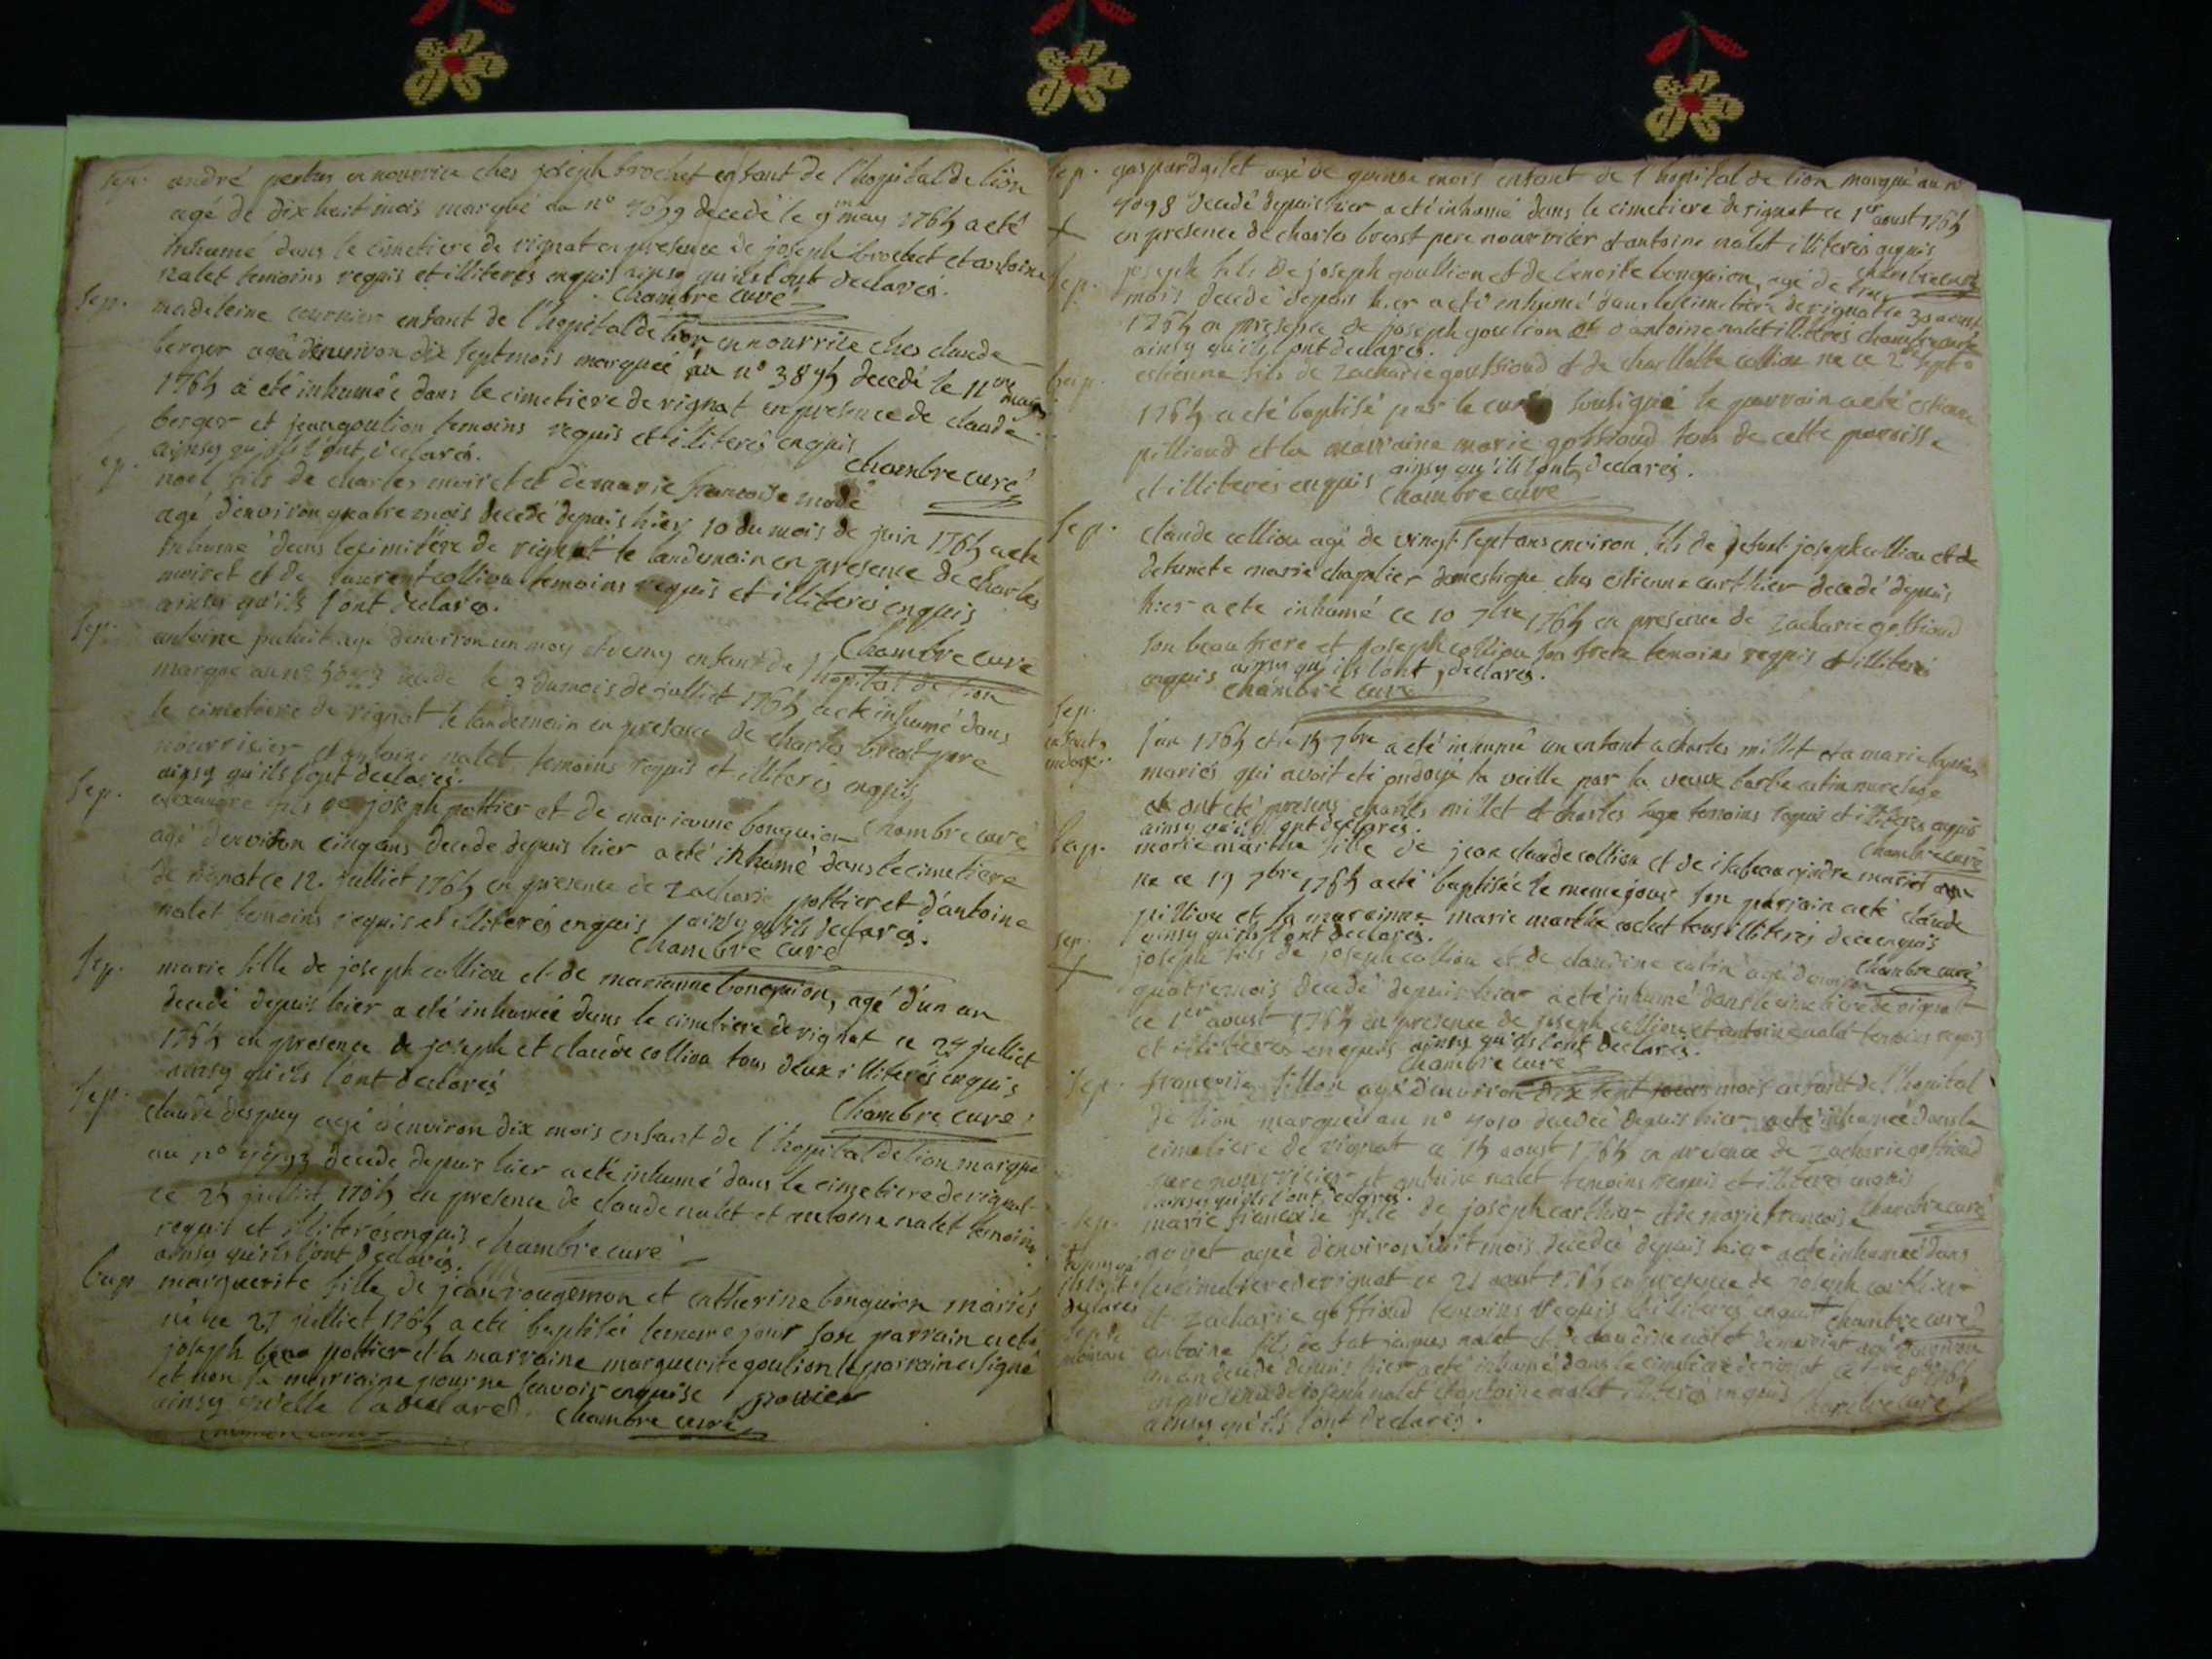 Sep. andré en nourrice ches joseph brochet enfant de l'hopital de lion
agé de dix huit mois marqué au n° decedé le 9 may 1765 a eté
inhumé dans le cimetiere de rignat en presence de joseph brochet et antoine
nalet temoins requis et illiterés enquis ainsy qu'ils l'ont declarés.
chambre curé
Sep. madeleine enfant de l'hopital de lion en nourrice ches claude
berger agée denviron dix sept mois marquée au n° decedé le 11
1765 a eté inhumée dans le cimetiere de rignat en presence de claude
berger et jean goulion temoins requis et illiterés enquis
ainsy qu'ils l'ont declarés.
chambre curé
noel fils de charles moiret et de marie francoise
agé denviron quatre mois decedé depuis hier 10 du mois de juin 1765 a eté
inhumé dans le cimitere de rignat le landemain en presence de charles
moiret et de laurent colliou temoins requis et illiterés enquis
ainsy qu'ils l'ont declarés.
chambre curé
Sep. antoine agé denviron un moy et demy enfant de l'hopital de lion
marqué au n° decedé le 3 du mois de julliet 1765 a eté inhumé dans
le cimetiere de rignat le landemain en presence de charles breost pere
nourrisier et antoine nalet temoins requis et illiterés enquis
ainsy qu'ils l'ont declarés.
chambre curé
Sep. alexandre fils de joseph pottier et de marianne bonguion
agé denviron cinq ans decedé depuis hier a eté inhumé dans le cimetiere
de rignat ce 12. julliet 1765 en presence de zacharie pottier et d'antoine
nalet temoins requis et illiterés enquis ainsy qu'ils declarés.
chambre curé
Sep. marie fille de joseph colliou et de marianne bonguion, agé d'un an
decedé depuis hier a eté inhumée dans le cimetiere de rignat ce julliet
1765 en presence de joseph et claude colliou tous deux illiterés enquis
ainsy qu'ils l'ont declarés
chambre curé
Sep. claude despuy agé d'environ dix mois enfant de l'hopital de lion marqué
au n° decedé depuis hier a eté inhumé dans le cimetiere de rignat
ce 25 julliet 1765 en presence de claude nalet et antoine nalet temoins
requis et illiterés enquis
ainsy qu'ils l'ont declarés.
chambre curé
bap marguerite fille de jean rougemon et catherine bonguion mariés
née ce 27 julliet 1765 a eté baptisée le meme jour son parrain a eté
joseph pottier et la marraine marguerite goulion le parrain a signé
et non la marraine pour ne scavoir enquise
ainsy qu'elle l'a declaré.
chambre curé
Sep. gaspard agé de quinse mois enfant de l'hopital de lion marqué au n°
4098 decedé depuis hier a eté inhumé dans le cimetiere de rignat ce 1er aoust 1765
en presence de charles breost pere nourricier et antoine nalet illiterés enquis
chambre curé
Sep. joseph fils de joseph goullion et de benoite bonguion, agé de
mois decedé depuis hier a eté inhumé dans le cimetiere de rignat ce 30 aoust
1765 en presence de joseph goulion et d'antoine nalet illiterés chambre curé
ainsy qu'ils l'ont declarés.
bap. estienne fils de zacharie goffioud et de charllotte colliou né ce 2 sept
1765 a eté baptisé par le curé soussigné le parrain a eté estienne
pillioud et la marraine marie goffioud tous de cette paroisse
et illiterés enquis ainsy qu'ils l'ont declarés.
chambre curé
Sep. claude colliou agé de vingt sept ans environ fils de defunt joseph colliou et de
defuncte marie chaplier domestique ches estienne carthier decedé depuis
hier a eté inhumé ce 10 7bre 1765 en presence de zacharie goffioud
son beau frere et joseph colliou son frere temoins requis et illiterés
enquis ainsy qu'ils l'ont declarés.
chambre curé
Sep.
enfant
ondoyé
l'an 1765 et le 15 7bre a eté inhumé un enfant a charles millet et a marie
mariés qui avoit eté ondoyé la veille par la veuve barbe catin
et ont eté presens charles millet et charles temoins requis et illiterés enquis
ainsy qu'ils l'ont declarés.
chambre curé
bap. marie marthe fille de jean claude colliou et de isabeau mariés
née ce 19 7bre 1765 a eté baptisée le meme jour son parrain a eté claude
pilliou et la marraine marie marthe cochet tous illiterés de ce enquis
ainsy qu'ils l'ont declarés.
chambre curé
Sep. joseph fils de joseph colliou et de claudine catin agé denviron
quatre mois decedé depuis hier a eté inhumé dans le cimetiere de rignat
ce 1er aoust 1765 en presence de joseph colliou et antoine nalet temoins requis
et illiterés enquis ainsy qu'ils l'ont declarés.
chambre curé
Sep. francoise agé denviron dix sept jours mois enfant de l'hopital
de lion marquée au n° 4010 decedée depuis hier a eté inhumée dans le
cimetiere de rignat ce 15 aoust 1765 en presence de zacharie goffioud
pere nourricier et antoine nalet temoins requis et illiterés enquis
ainsy qu'ils l'ont declarés.
chambre curé
Sep. marie francoise fille de joseph carthier et de marie francoise
goyet agée denviron huit mois decedée depuis hier a eté inhumée dans
le cimetiere de rignat ce 21 aoust 1765 en presence de joseph carthier
et zacharie goffioud temoins requis et illiterés enquis chambre curé
ils l'ont
declarés
antoine fils de jaques nalet et de claudine nalet agé d'environ
un an decedé depuis hier a eté inhumé dans le cimetiere de rignat ce 8bre 1765
en presence de joseph nalet et antoine nalet illiterés enquis
ainsy qu'ils l'ont declarés.
chambre curé